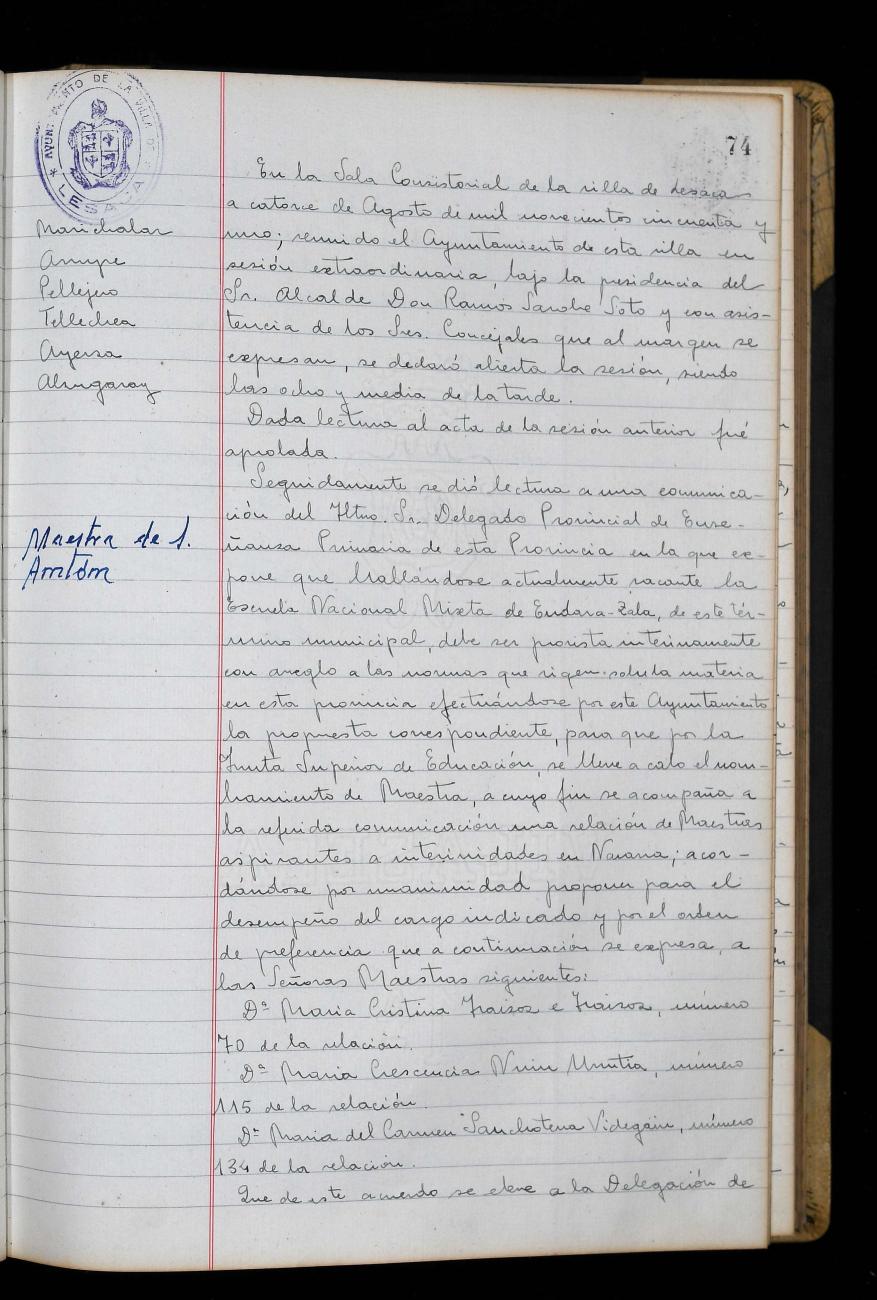 AYUNTAMIENTO DE LA VILLA DE
* LESACA *
74
Marichalar
Arrupe
Pellejero
Tellechea
Ayerza
Almgaray
Maestra de S.
Antón
En la Sala Consistorial de la villa de Lesaca
a catorce de Agosto de mil novecientos cincuenta y
uno; reunido el Ayuntamiento de esta villa en
sesión extraordinaria, bajo la presidencia del
Sr. Alcalde Don Ramón Sanche Soto y con asis-
tencia de los Sres. Concejales que al margen se
expresan, se declaró abierta la sesión, siendo
las ocho y media de la tarde.
Dada lectura al acta de la sesión anterior fué
aprobada.
Seguidamente se dió lectura a una comunica-
ción del Iltmo. Sr. Delegado Provincial de Ense-
ñanza Primaria de esta Provincia en la que ex-
pone que hallándose actualmente vacante la
Escuela Nacional Mixta de Endara-Zala, de este tér-
mino municipal, debe ser provista interinamente
con arreglo a las normas que rigen sobre la materia
en esta provincia efectuándose por este Ayuntamiento
la propuesta correspondiente, para que por la
Junta Superior de Educación, se lleve a cabo el nom-
bramiento de Maestra, a cuyo fin se acompaña a
la referida comunicación una relación de Maestras
aspirantes a interinidades en Navarra; acor-
dándose por unanimidad proponer para el
desempeño del cargo indicado y por el orden
de preferencia que a continuación se expresa, a
las Señoras Maestras siguientes:
Dª Maria Cristina Iraizoz e Iraizoz, número
70 de la relación.
Dª Maria Crescencia Nuin Urrutia, número
115 de la relación.
Dª Maria del Carmen Sanchotena Videgain, número
134 de la relación.
Que de este acuerdo se eleve a la Delegación de